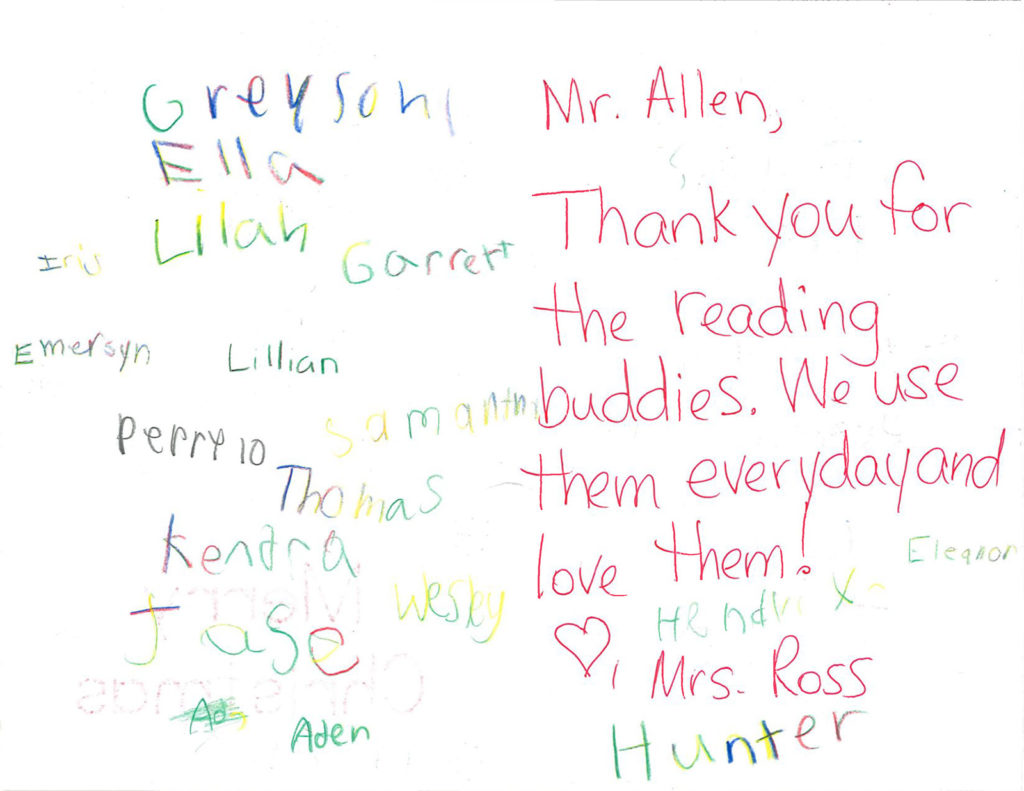 Greyson
Ella
Lilah
Iris
Garrett
Emersyn
Lillian
Perry 10
Samantha
Thomas
Kendra
Wesley
Jase
Merry
Christmas
Aden
Mr. Allen,
Thank you for
the reading
buddies. We use
them everyday and
love them!
Eleanor
Hendrix
♡, Mrs. Ross
Hunter